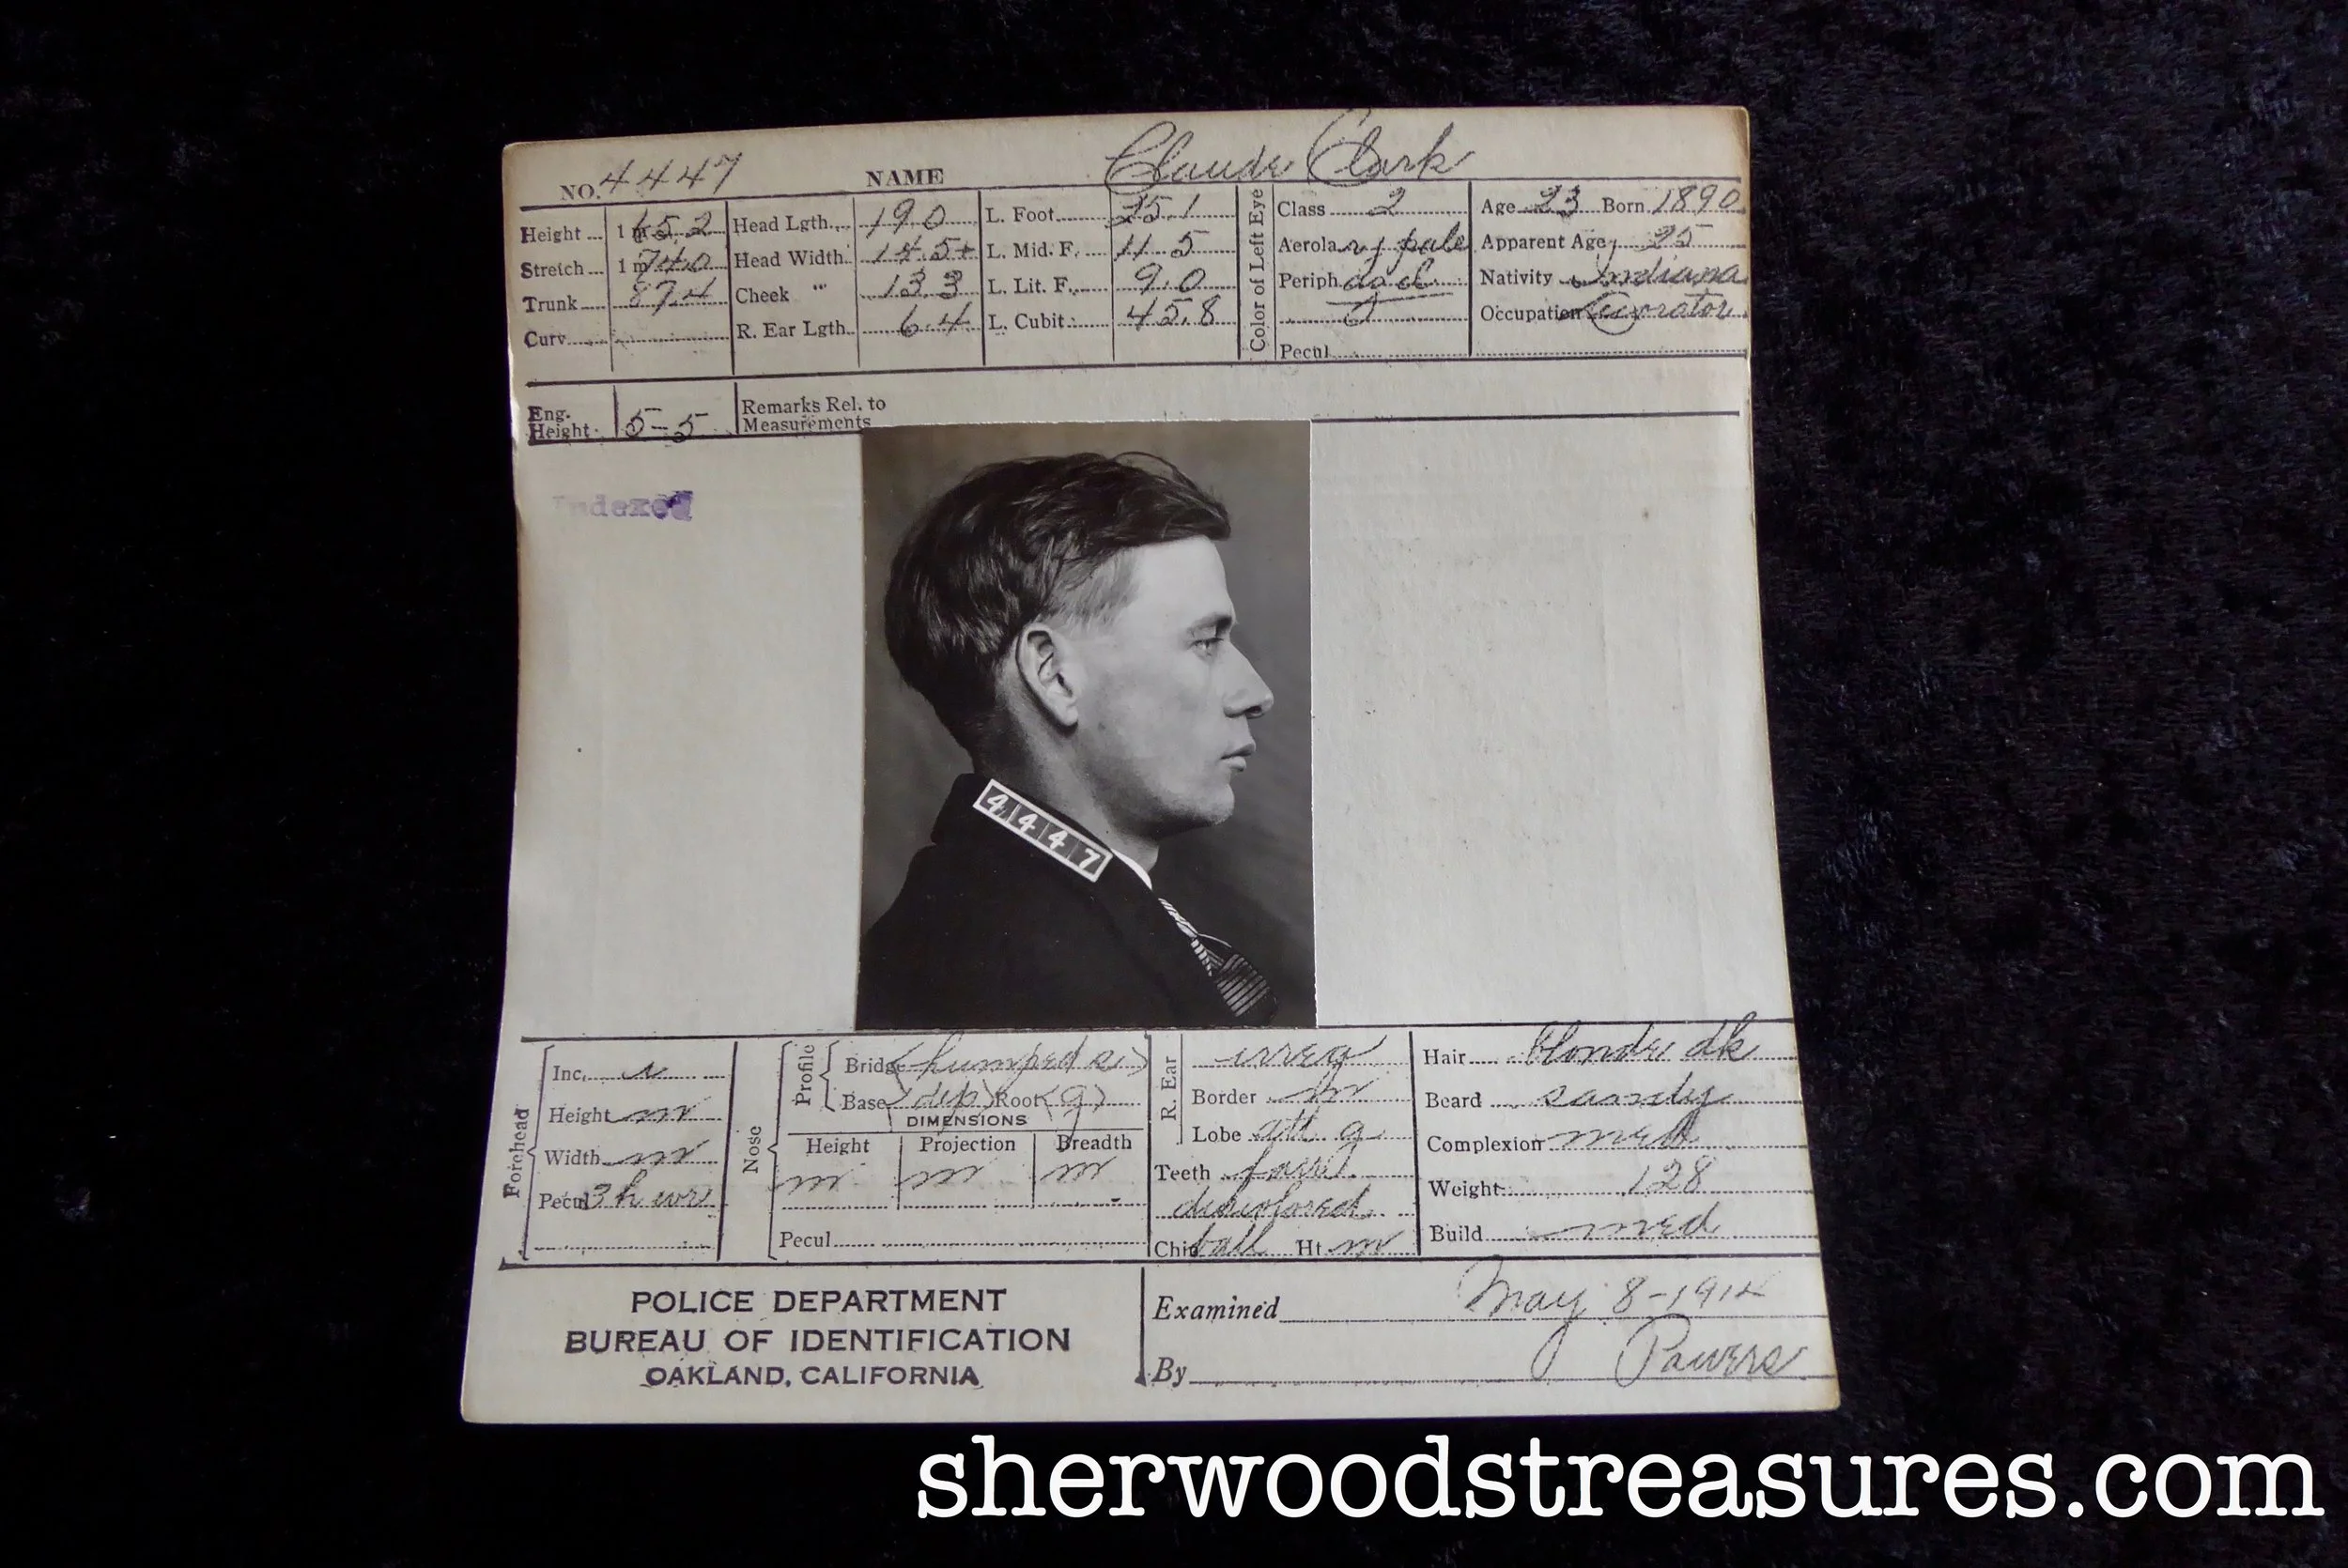 NO. 4447 NAME Claude Clark
Height 1 m 65.2 Head Lgth. 19 0 L. Foot 25.1 Color of Left Eye Class 2 Age 23 Born 1890
Stretch 1 m 74.0 Head Width 14.5+ L. Mid. F. 11.5 Aerola pale Apparent Age 25
Trunk 87.4 Cheek " 13 3 L. Lit. F. 9.0 Periph Nativity Indiana
Curv. R. Ear Lgth. 6.4 L. Cubit 45.8 Occupation
Pecul.
Eng. Height 5-5 Remarks Rel. to
Measurements
Indexed
4447
Forehead Inc. Nose Profile Bridge (humped s) R. Ear irreg Hair blonde dk
Height m Base (dep) Root (g) Border m Beard sandy
DIMENSIONS
Width m Height Projection Breadth Lobe att. g Complexion med
Pecul 3 h wr m m m Teeth Weight 128
discolored
Pecul. Chin ball Ht. m Build med
POLICE DEPARTMENT
BUREAU OF IDENTIFICATION
OAKLAND, CALIFORNIA
Examined May 8-1914
By Powers
sherwoodstreasures.com